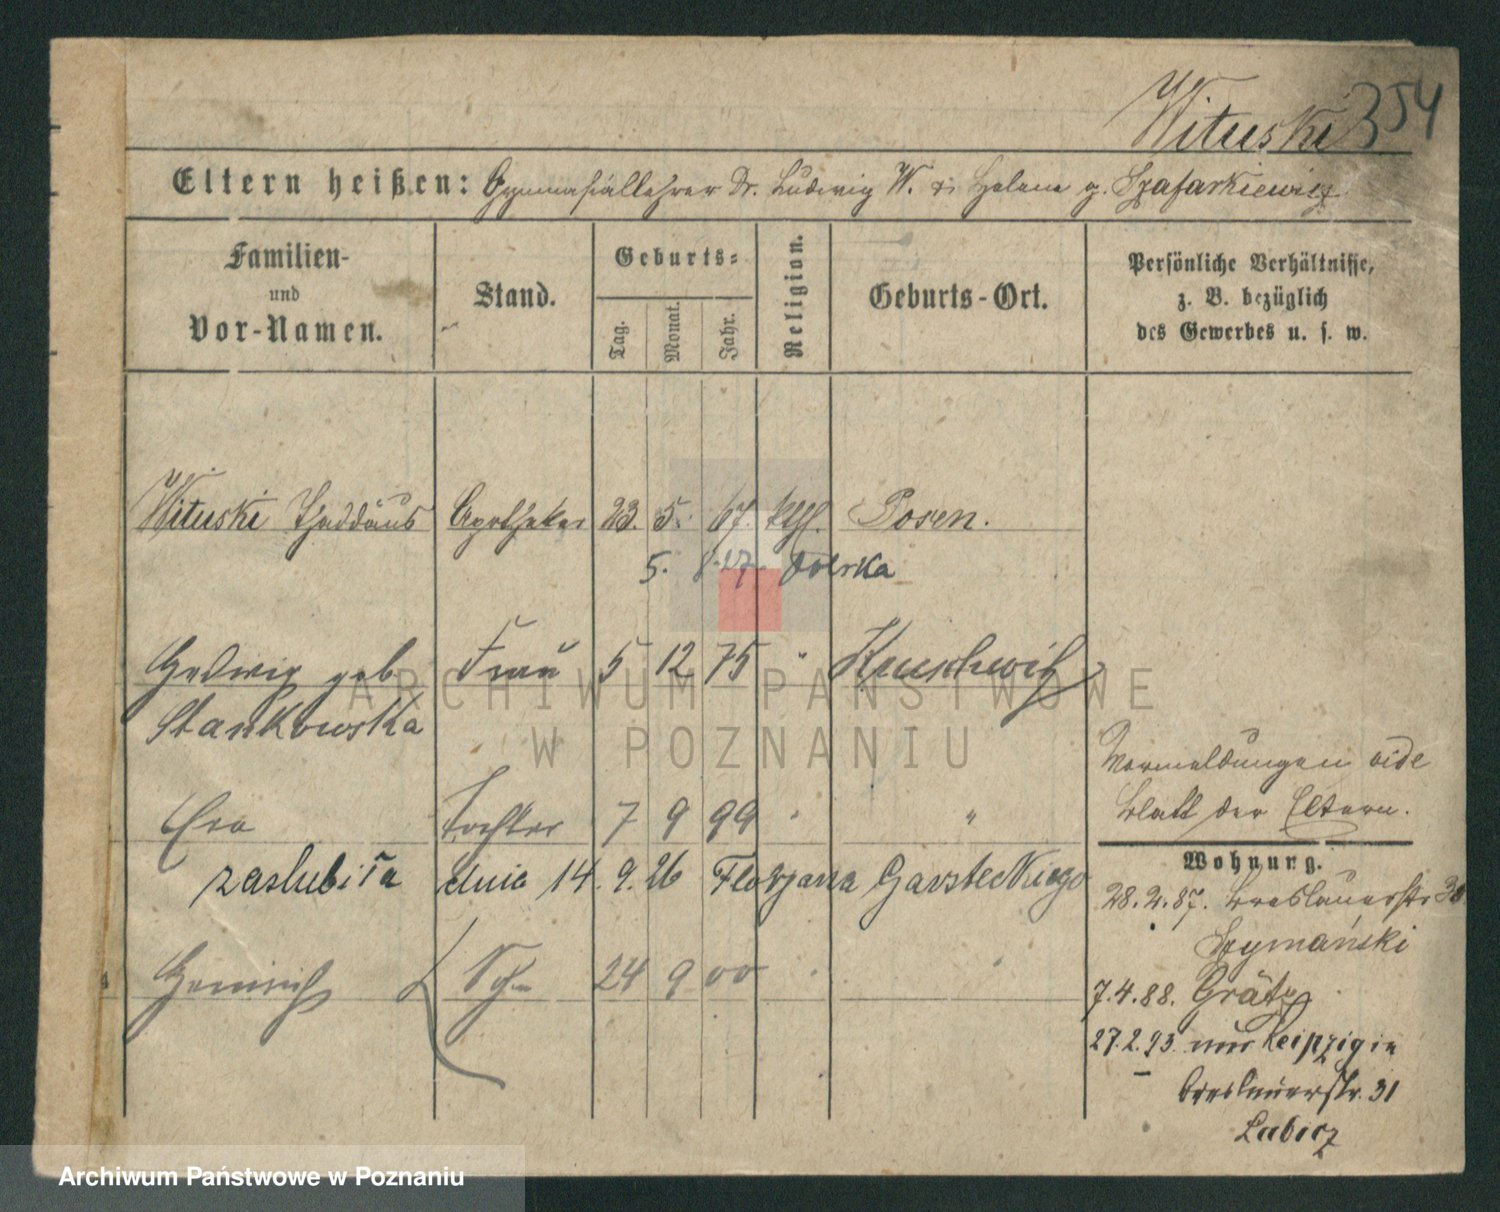 Wituski 354
Eltern heißen: Gymnasiallehrer Dr. Ludwig W. & Helene g. Szafarkiewicz
Familien- und Vor-Namen. Stand. Geburts- Tag. Monat. Jahr. Religion. Geburts-Ort. Persönliche Verhältnisse, z. B. bezüglich des Gewerbes u. s. w.
Wituski Thaddäus Apotheker 23. 5. 67. kth. Posen.
5. 8. 27
Hedwig geb Frau 5 12 75 " Kruschwitz
Stankowska
ARCHIWUM PAŃSTWOWE
W POZNANIU
Vormeldungen vide
Blatt der Eltern.
Eva Tochter 7 9 99 " "
zaslubiła dnia 14. 9. 26 Florjana Garsteckiego
Heinrich Sohn 24 9 00 " "
Wohnung.
28.2.87. Breslauerstr 30
Szymański
7.4.88. Grätz
27.2.93. aus Leipzig in
Breslauerstr. 31
Labicz
Archiwum Państwowe w Poznaniu